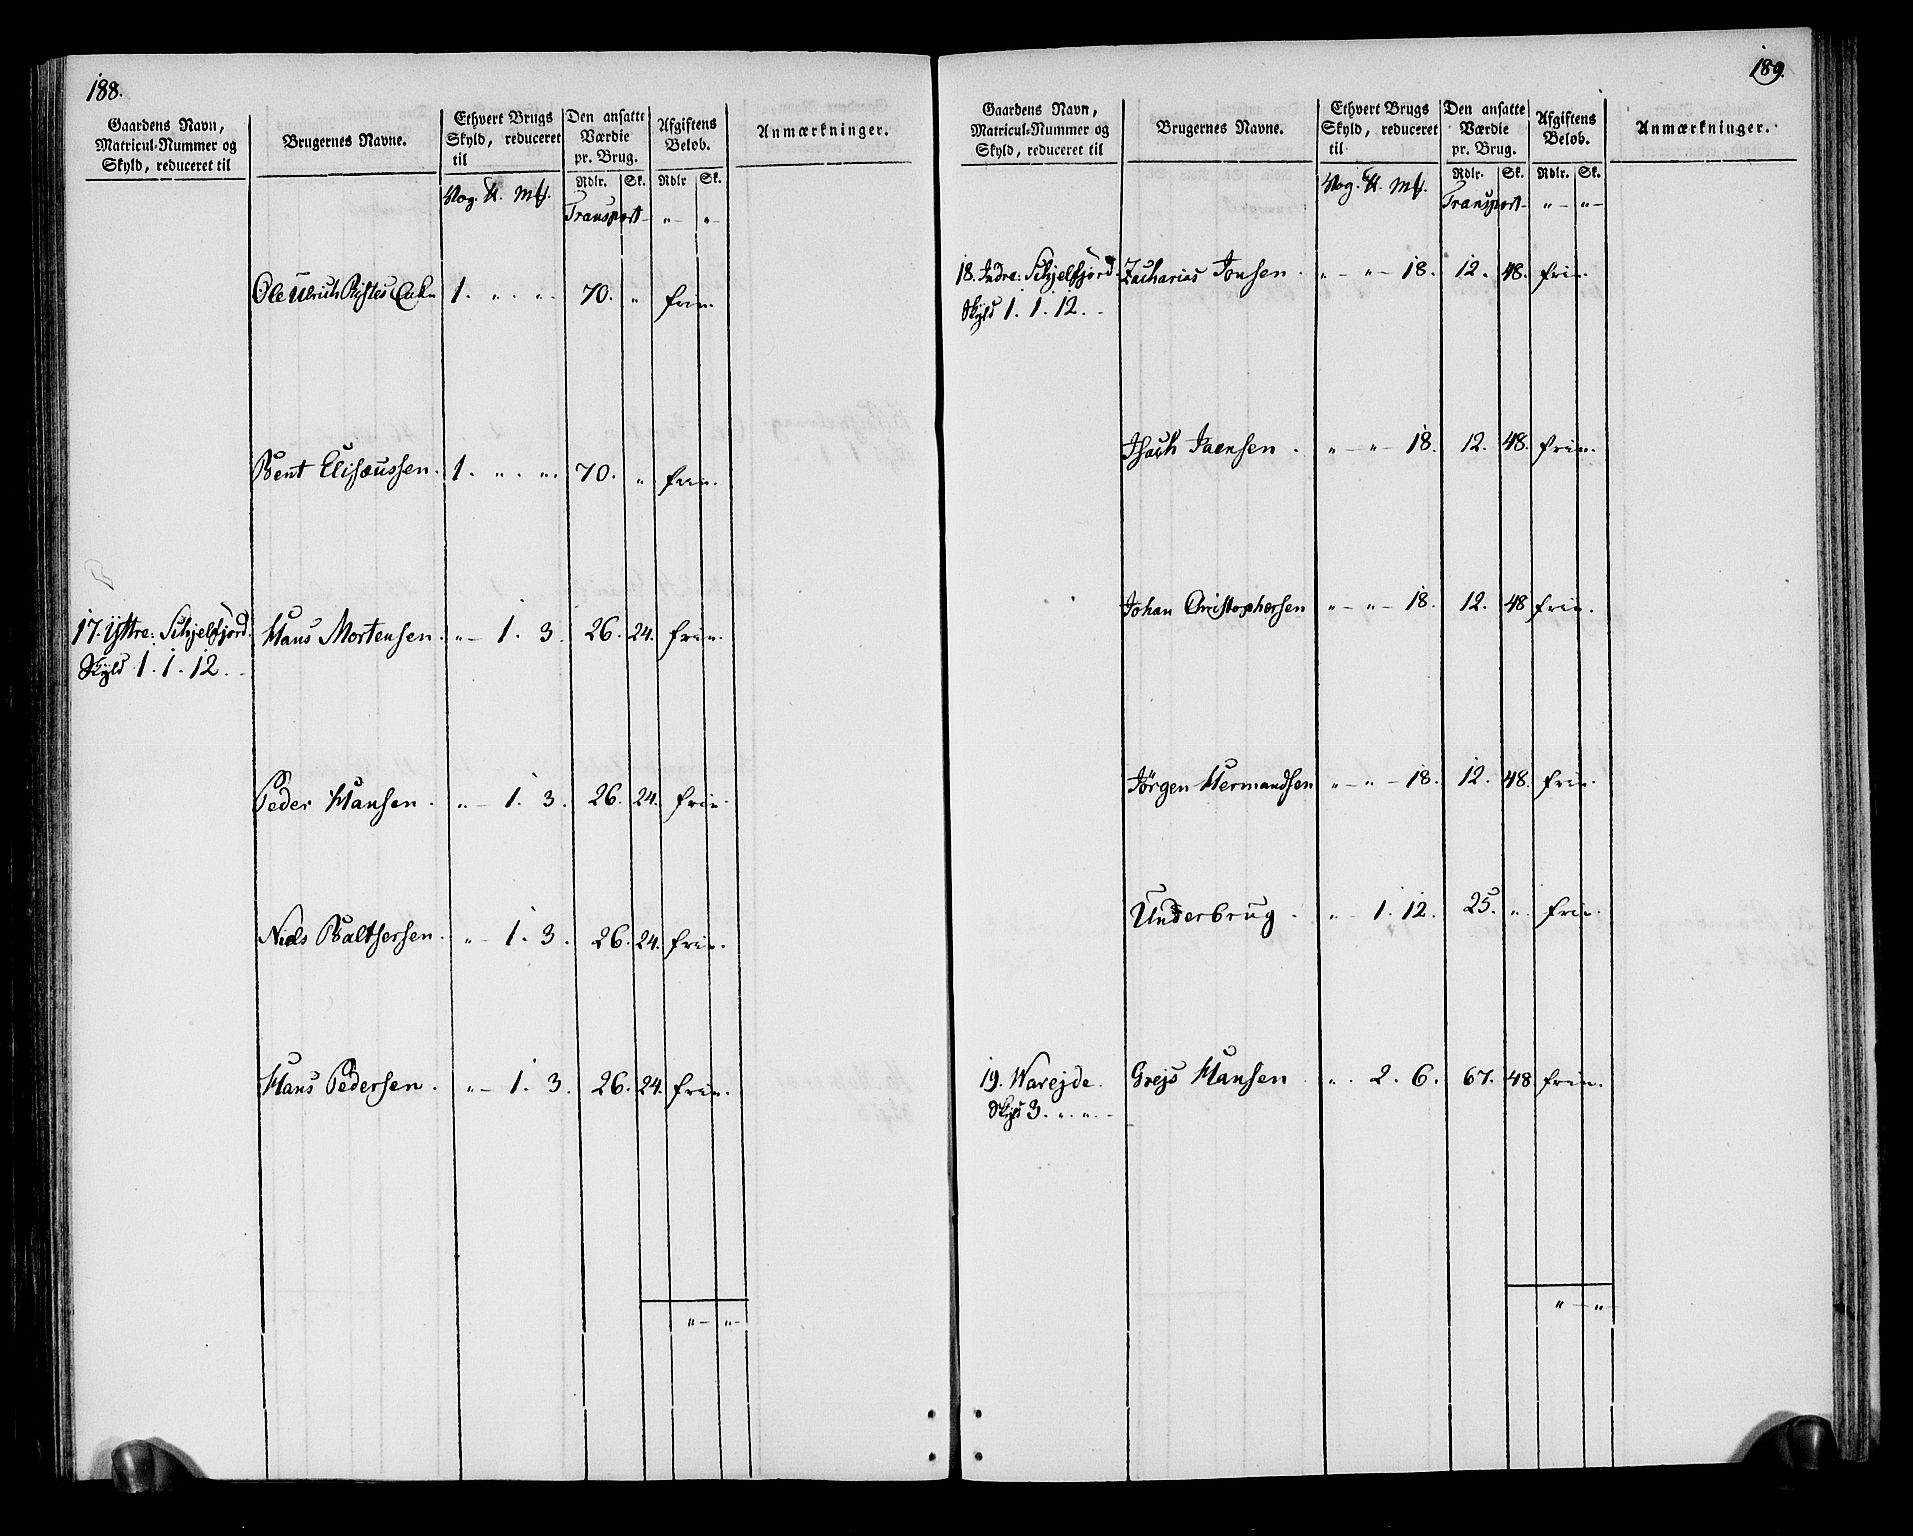 188.
Gaardens Navn, Matricul-Nummer og Skyld, reduceret til
Brugernes Navne.
Ethvert Brugs Skyld, reduceret til
Den ansatte Værdie pr. Brug.
Afgiftens Beløb.
Anmærkninger.
Rdlr. Sk. Rdlr Sk.
Vog. Mk.
Transport „ – „ –
Ole Ulrich 1. „ . „ . 70. „ frie.
Bent Elisæussen. 1. „ . „ . 70. „ frie.
17. Yttre: Schjelfjord. Hans Mortensen. „ – 1. 3. 26. 24. frie.
Skyld 1. 1. 12. –
Peder Hansen. „ – 1. 3. 26. 24. frie.
Niels Baltsersen. „ – 1. 3. 26. 24. frie.
Hans Pedersen. „ – 1. 3. 26. 24. frie.
„ – „ –
189.
Gaardens Navn, Matricul-Nummer og Skyld, reduceret til
Brugernes Navne.
Ethvert Brugs Skyld, reduceret til
Den ansatte Værdie pr. Brug.
Afgiftens Beløb.
Anmærkninger.
Rdlr. Sk. Rdlr. Sk.
Vog. Mk.
Transport – „ – „ –
18. Indre: Schjelfjord. Zacharias Jonsen. „ – „ – 18. 12. 48. frie.
Skyld 1. 1. 12. –
Isach Jaensen. „ – „ – 18. 12. 48. frie.
Johan Christophersen „ – „ – 18. 12. 48 frie.
Jörgen Hermandsen „ – „ – 18. 12. 48. frie.
Underbrug. „ – 1. 12. 25. „ . frie.
19. Warejde. Grejs Hansen „ . 2. 6. 67. 48 frie.
Skyld 3. „ . „ . –
„ – „ –